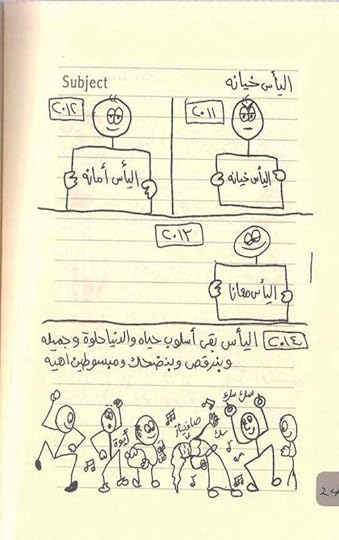 Subject
اليأس خيانه
٢٠١١
اليأس خيانه
٢٠١٢
اليأس أمانه
٢٠١٣
اليأس معانا
٢٠١٤ اليأس بقى أسلوب حياه والدنيا حلوة وجميله
وبنرقص وبنضحك ومبسوطين اهيه
أيوة
صافيناز
سك سك
سك
24